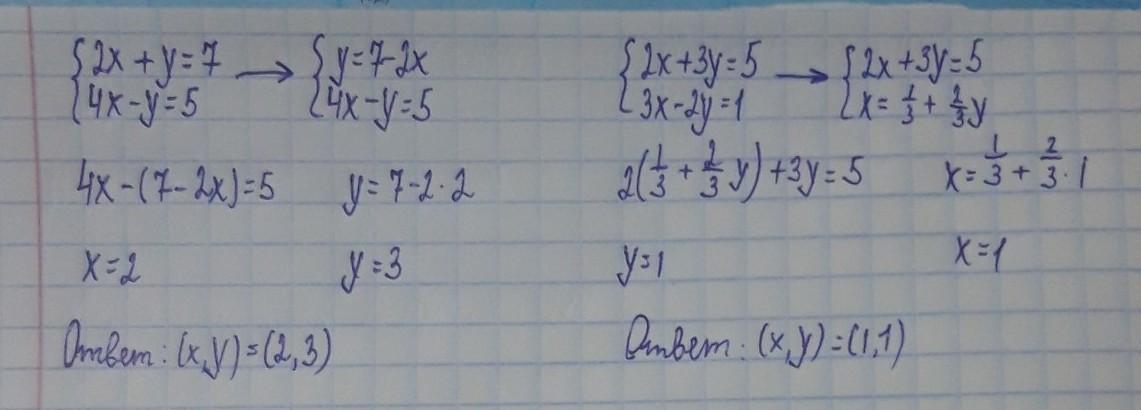 {2x + y = 7 → {y = 7-2x
{4x - y = 5 {4x - y = 5
4x - (7 - 2x) = 5 y = 7 - 2 · 2
x = 2 y = 3
Ответ: (x,y) = (2,3)
{2x + 3y = 5 → {2x + 3y = 5
{3x - 2y = 1 {x = 1/3 + 2/3 y
2(1/3 + 2/3 y) + 3y = 5 x = 1/3 + 2/3 · 1
y = 1 x = 1
Ответ: (x,y) = (1,1)